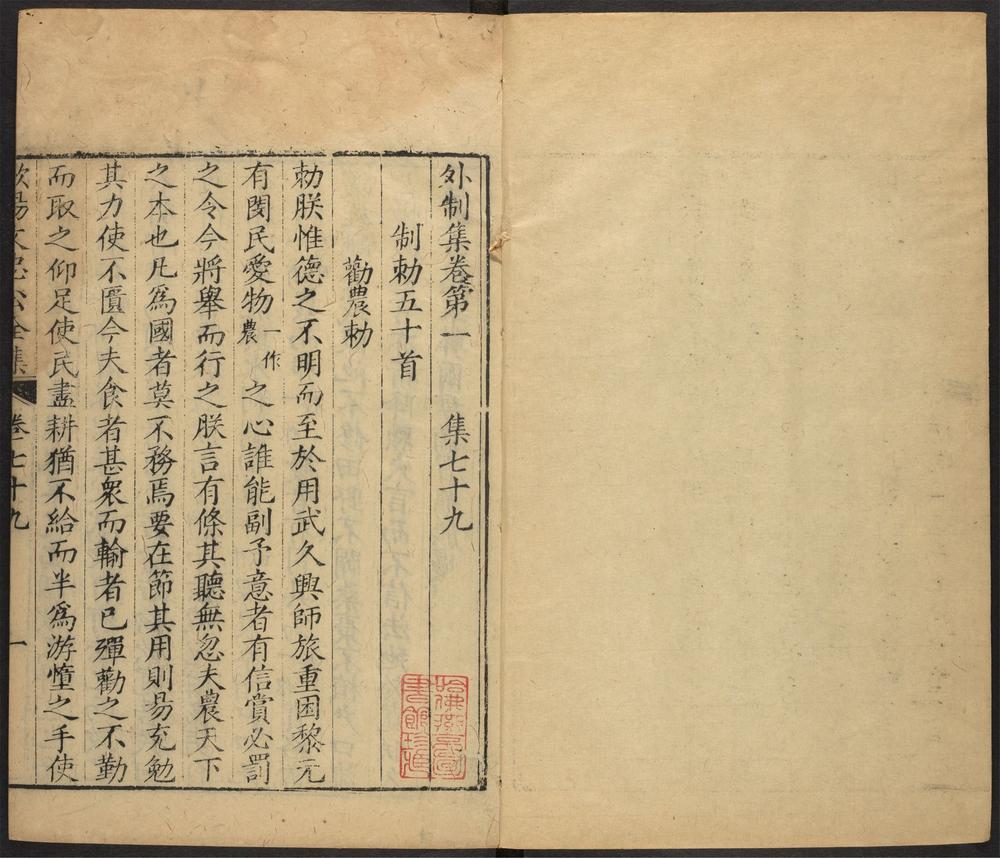 外制集卷第一 集七十九
制勅五十首
勸農勅
勅朕惟德之不明而至於用武久興師旅重困黎元
有閔民愛物一作農之心誰能副予意者有信賞必罰
之令今將舉而行之朕言有條其聽無忽夫農天下
之本也凡爲國者莫不務焉要在節其用則易充勉
其力使不匱今夫食者甚衆而輸者已殫勸之不勤
而取之仰足使民盡耕猶不給而半爲游惰之手使
歐陽文忠公全集 卷七十九 一
哈佛燕京圖書館珍藏